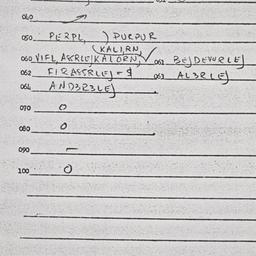 040
050 PERPL, ) PURPUR
(KALIRN,
060 VIFL, ASRLEJKALORN, 061 BEJDEVURLEJ
062 FIRASSRLEJ - $ 063 ALSRLEJ
064 ANDSRSLEJ
070 0
080 0
090 -
100 0